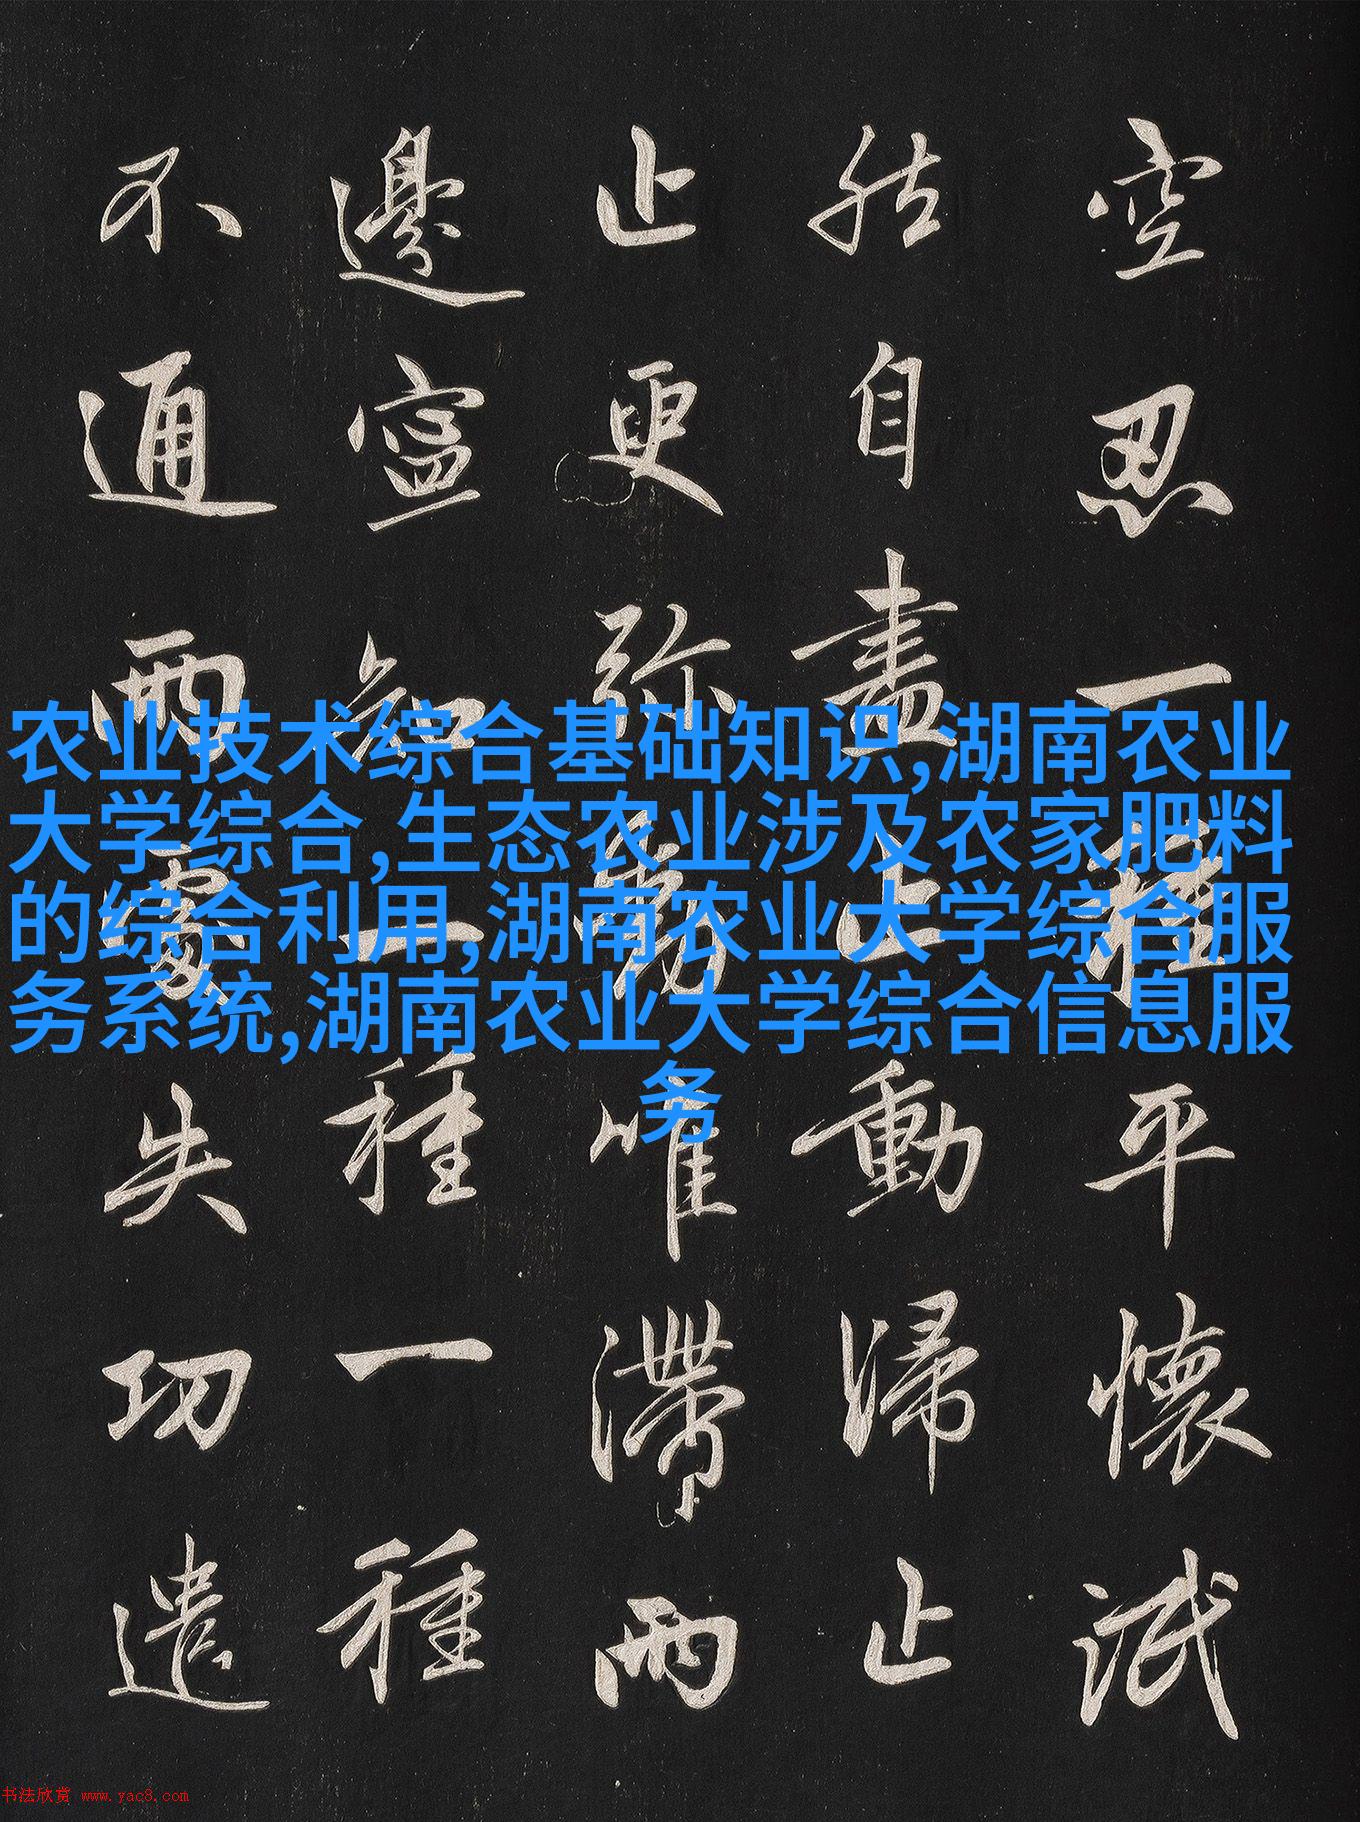 空忍一種平懷泯
然自盡止動歸止
止更弥動唯滯兩
邊寧知一種一種
不通兩處失功遣
农业技术综合基础知识,湖南农业
大学综合,生态农业涉及农家肥料
的综合利用,湖南农业大学综合服
务系统,湖南农业大学综合信息服
务
书法欣赏 www.yac8.com